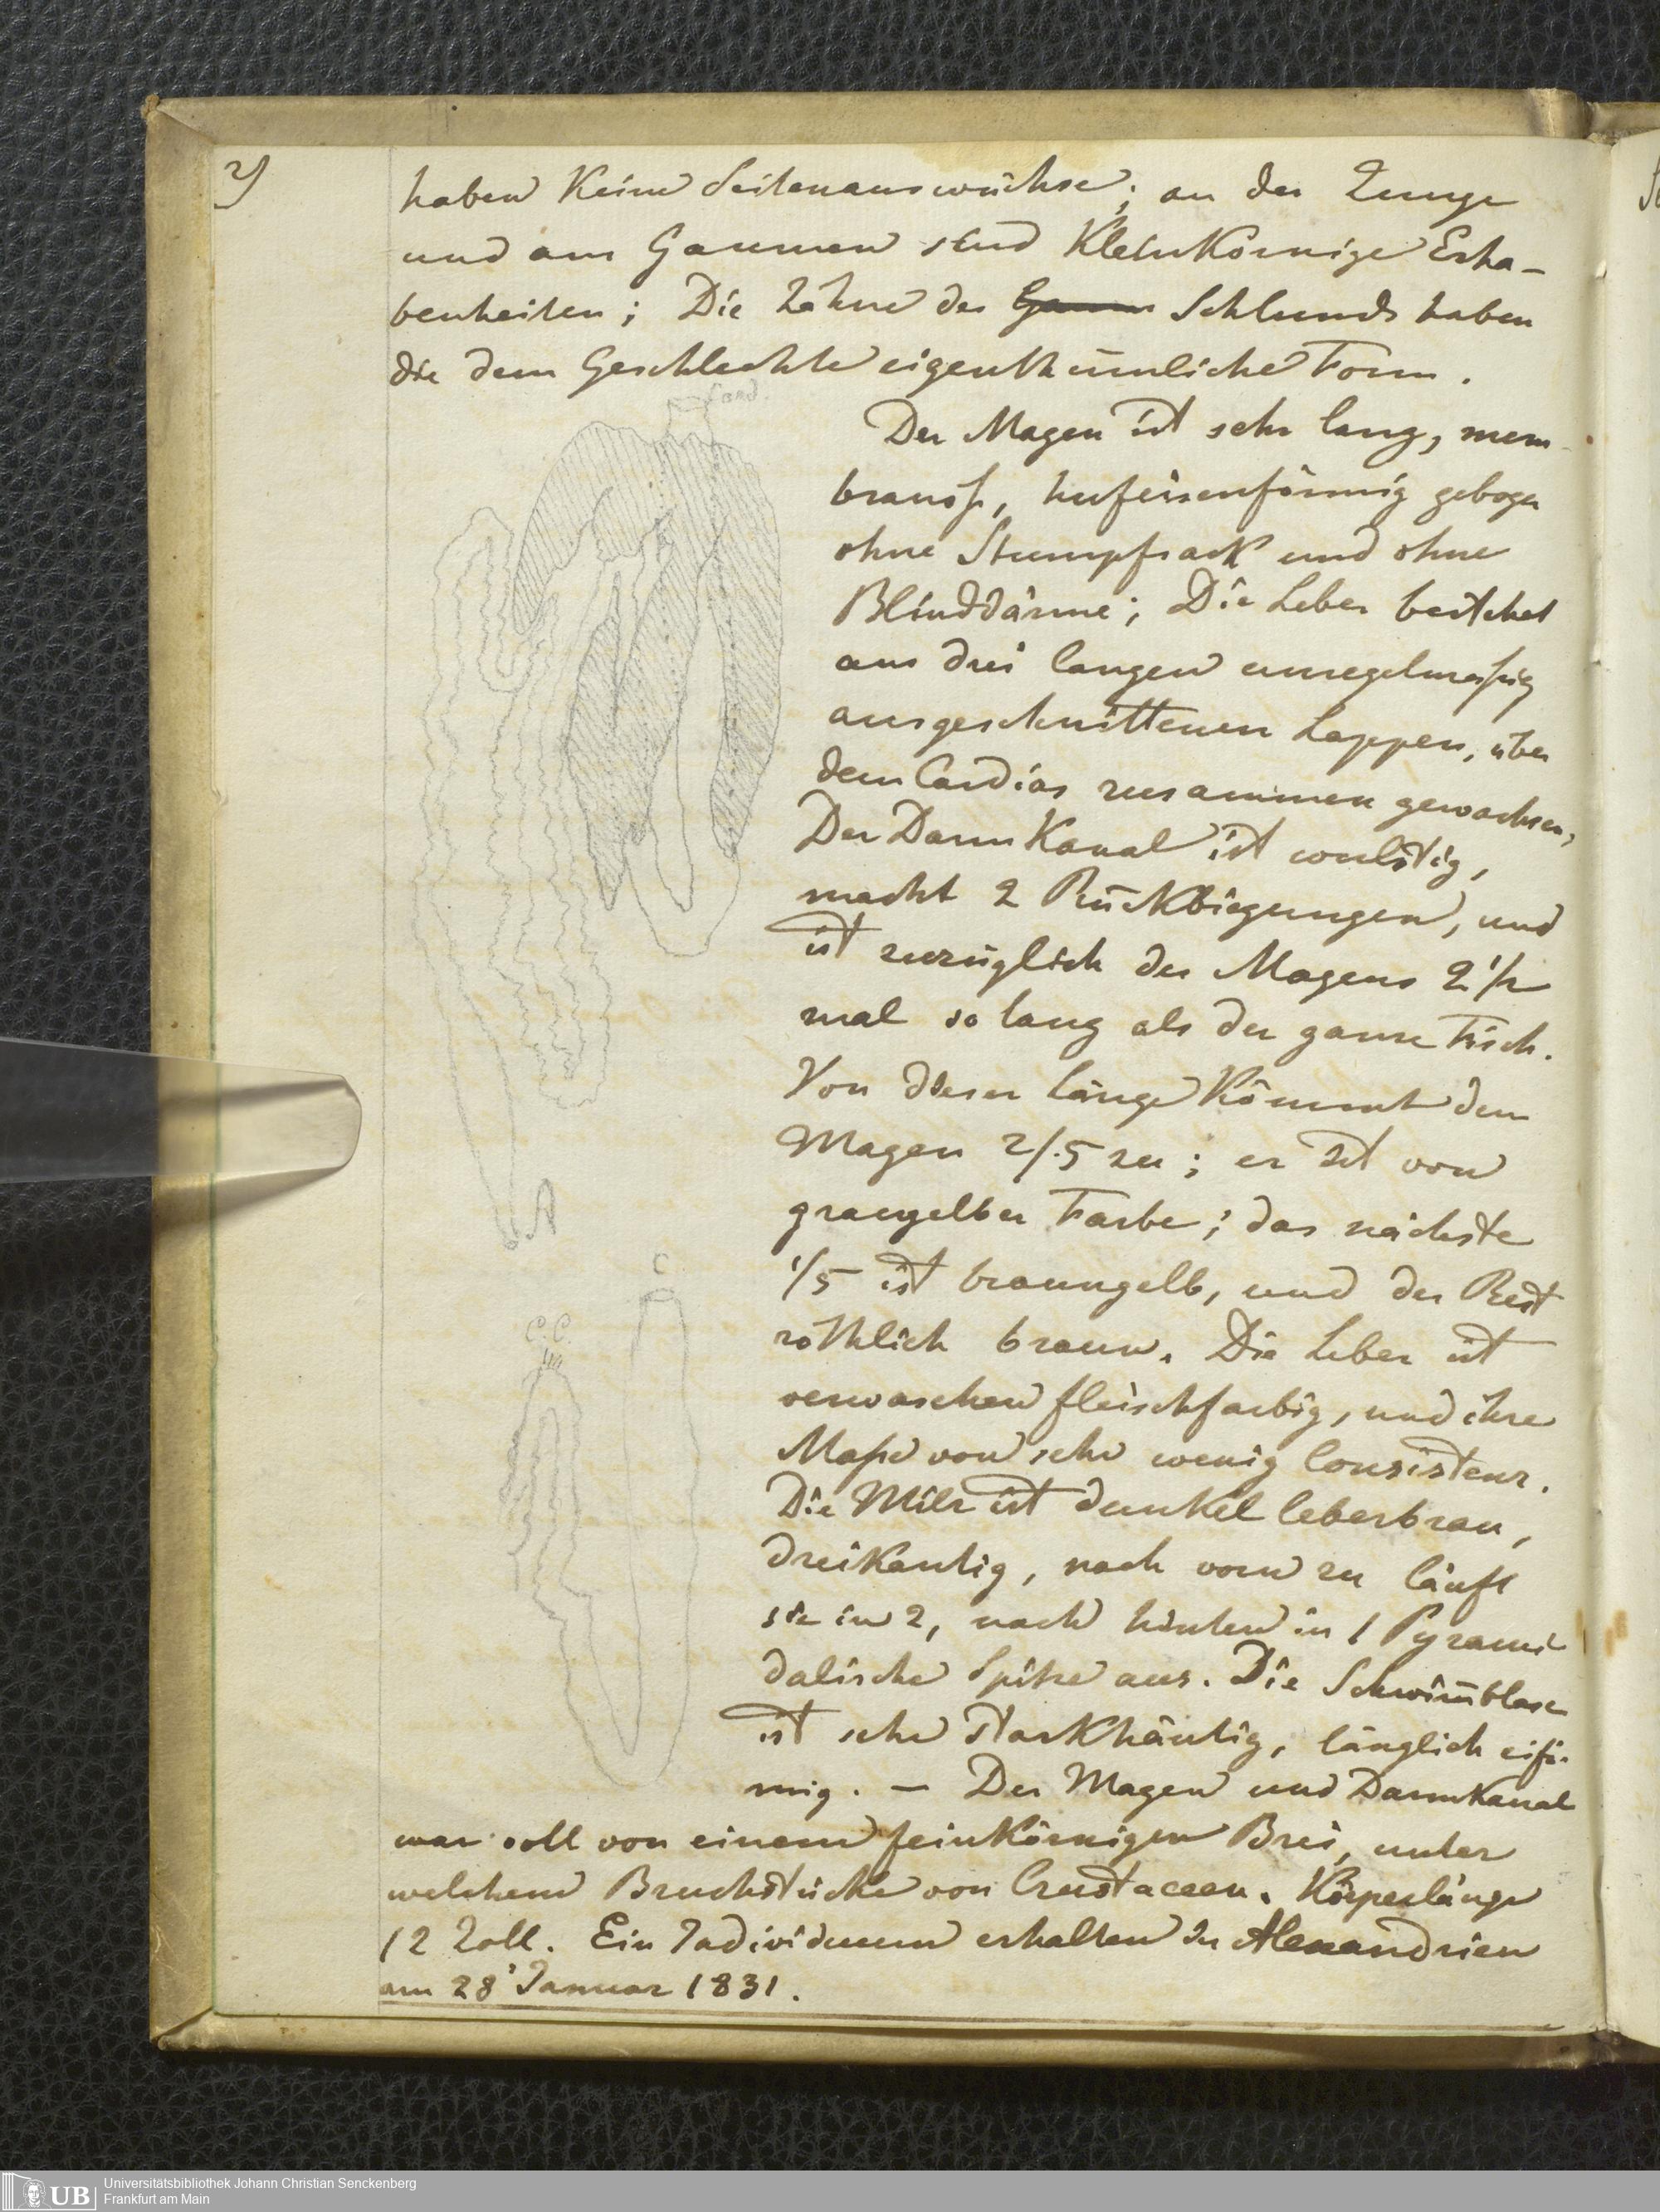 2)
haben Keine Seitenauswüchse; an der Zunge
und am Gaumen sind Kleinkörnige Erha-
benheiten; Die Zähne des Gaum Schlunds haben
die dem Geschlechte eigenthümliche Form.
Card.
Der Magen ist sehr lang, mem-
branös, hufeisenförmig gebogen
ohne Stumpfsack und ohne
Blinddärme; Die Leber bestehet
aus drei langen unregelmaßig
ausgeschnittenen Lappen, über
dem Cardias zusammen gewachsen,
Der Darm Kanal ist wulstig,
macht 2 Rückbiegungen, und
ist zuzüglich des Magens 2 1/2
mal so lang als der ganze Fisch.
Von dieser Länge Kömmt dem
Magen 2/5 zu; er ist von
graugelber Farbe; das nächste
1/5 ist braungelb, und der Rest
röthlich braun. Die Leber ist
verwaschen fleischfarbig, und ihre
Maße von sehr wenig Consistenz.
Die Milz ist dunkel leberbrau,
dreikantig, nach vorn zu läuft
sie in 2, nach hinten in 1 Pyrami
dalische Spitze aus. Die Schwim̄blase
ist sehr starkhäutig, länglich eifö-
mig. — Der Magen und DarmKanal
war voll von einem feinkörnigen Brei, unter
welchem Bruchstücke von Crustaceen. Körperlänge
12 Zoll. Ein Individuum erhalten in Alexandrien
am 28' Januar 1831.
A
C
C.C.
UB
Universitätsbibliothek Johann Christian Senckenberg
Frankfurt am Main